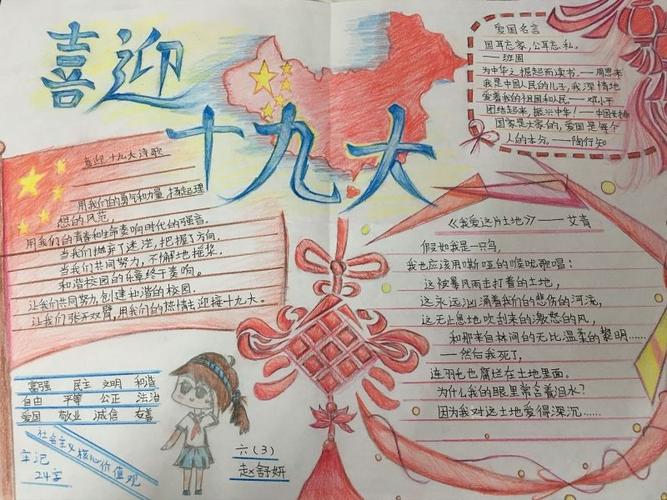 喜迎
十九大
爱国名言
国耳忘家,公耳忘私。
——班固
为中华之崛起而读书。——周恩来
我是中国人民的儿子,我深情地
爱着我的祖国和人民——邓小平
团结起来,振兴中华!——
国家是大家的,爱国是每个
人的本分。——陶行知
喜迎十九大诗歌
用我们的勇气和力量,扬起理
想的风范,
用我们的青春和生命奏响时代的强音,
当我们抛弃了迷茫,把握了方向,
当我们共同努力,不懈地摇桨,
和谐校园的乐章终于奏响。
让我们共同努力,创建和谐的校园,
让我们张开双臂,用我们的热情去迎接十九大。
《我爱这片土地》——艾青
假如我是一只鸟,
我也应该用嘶哑的喉咙歌唱:
这被暴风雨击打着的土地,
这永远汹涌着我们的悲伤的河流,
这无止息地吹刮来的激怒的风,
和那来自林间的无比温柔的黎明……
——然后我死了,
连羽毛也腐烂在土地里面。
为什么我的眼里常含着泪水?
因为我对这土地爱得深沉……
富强 民主 文明 和谐
自由 平等 公正 法治
爱国 敬业 诚信 友善
社会主义核心价值观
牢记
24字
六(3)
赵舒妍